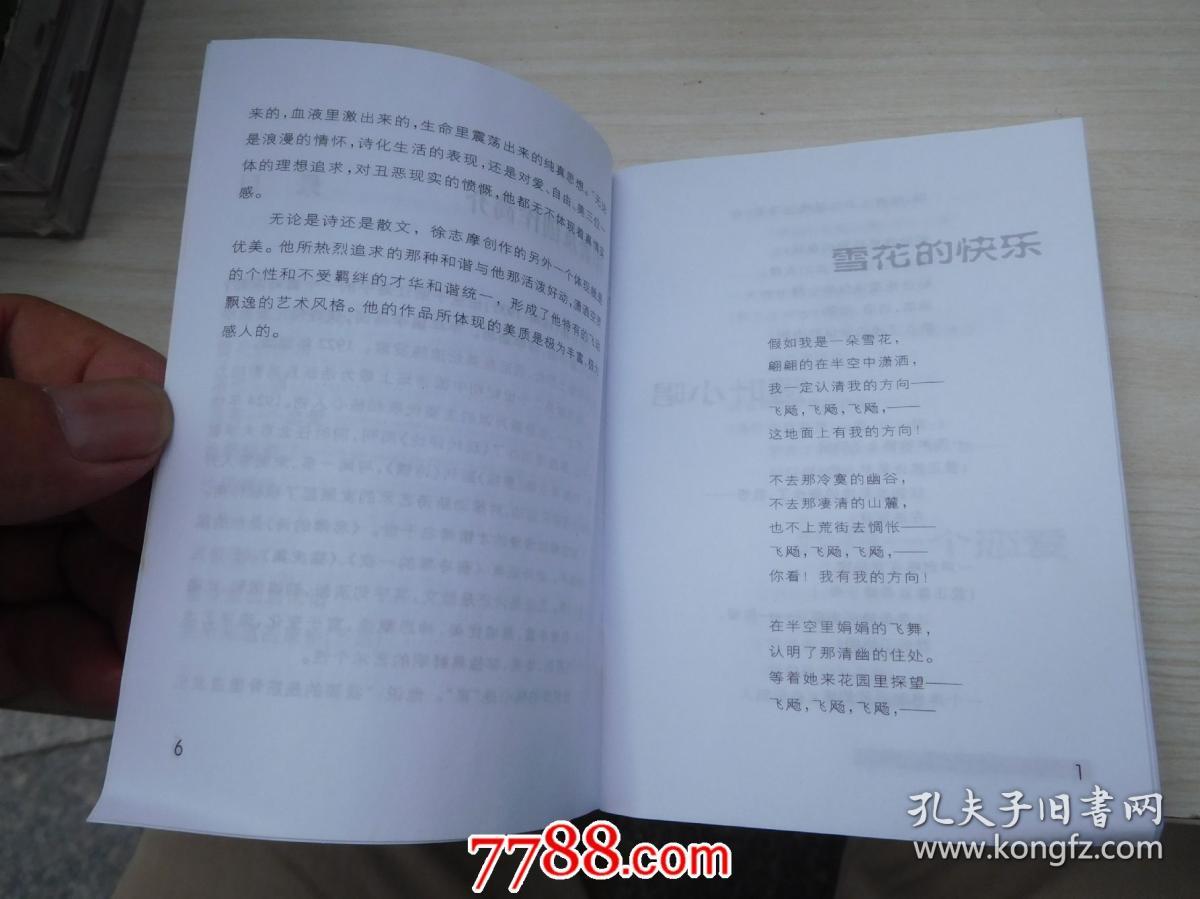 来的，血液里激出来的，生命里震荡出来的纯真思想。"无论
是浪漫的情怀，诗化生活的表现，还是对爱、自由、美三位一
体的理想追求，对丑恶现实的愤慨，他都无不体现着真情实
感。
无论是诗还是散文，徐志摩创作的另外一个体现就是
优美。他所热烈追求的那种和谐与他那活泼好动，潇洒空灵
的个性和不受羁绊的才华和谐统一，形成了他特有的飞动
飘逸的艺术风格。他的作品所体现的美质是极为丰富、极为
感人的。
6
雪花的快乐
假如我是一朵雪花，
翩翩的在半空中潇洒，
我一定认清我的方向——
飞飏，飞飏，飞飏，——
这地面上有我的方向！
不去那冷寞的幽谷，
不去那凄清的山麓，
也不上荒街去惆怅——
飞飏，飞飏，飞飏，——
你看！我有我的方向！
在半空里娟娟的飞舞，
认明了那清幽的住处。
等着她来花园里探望——
飞飏，飞飏，飞飏，——
1
孔夫子旧书网
www.kongfz.com
7788.com